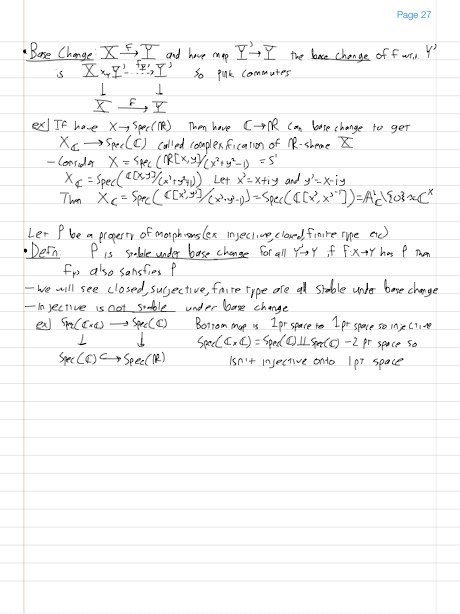 Page 27
• Base Change: X →F Y and have map Y' → Y the base change of F w.r.t. Y'
is X ×_Y Y' →f_{Y'} Y' so pink commutes
↓ ↓
X →F Y
ex] If have X → Spec(ℝ) Then have ℂ → ℝ can base change to get
X_ℂ → Spec(ℂ) called complexification of ℝ-sheme X
- Consider X = Spec(ℝ[x,y]/(x²+y²-1)) = S¹
X_ℂ = Spec(ℂ[x,y]/(x²+y²-1)) Let x'=x+iy and y'=x-iy
Then X_ℂ = Spec(ℂ[x',y']/(x'y'-1)) = Spec(ℂ[x',x'⁻¹]) = 𝔸¹_ℂ\{0} ≈ ℂ^×
Let P be a property of morphisms (ex injective, closed, finite type etc)
• Defn: P is stable under base change for all Y' → Y if F: X → Y has P then
f_{Y'} also satisfies P
- We will see closed, surjective, finite type are all stable under base change
- Injective is not stable under base change
ex] Spec(ℂ×ℂ) → Spec(ℂ) Bottom map is 1pt space to 1pt space so injective
↓ ↓ Spec(ℂ×ℂ) = Spec(ℂ)⊔Spec(ℂ) - 2 pt space so
Spec(ℂ) ↪ Spec(ℝ) Isn't injective onto 1pt space